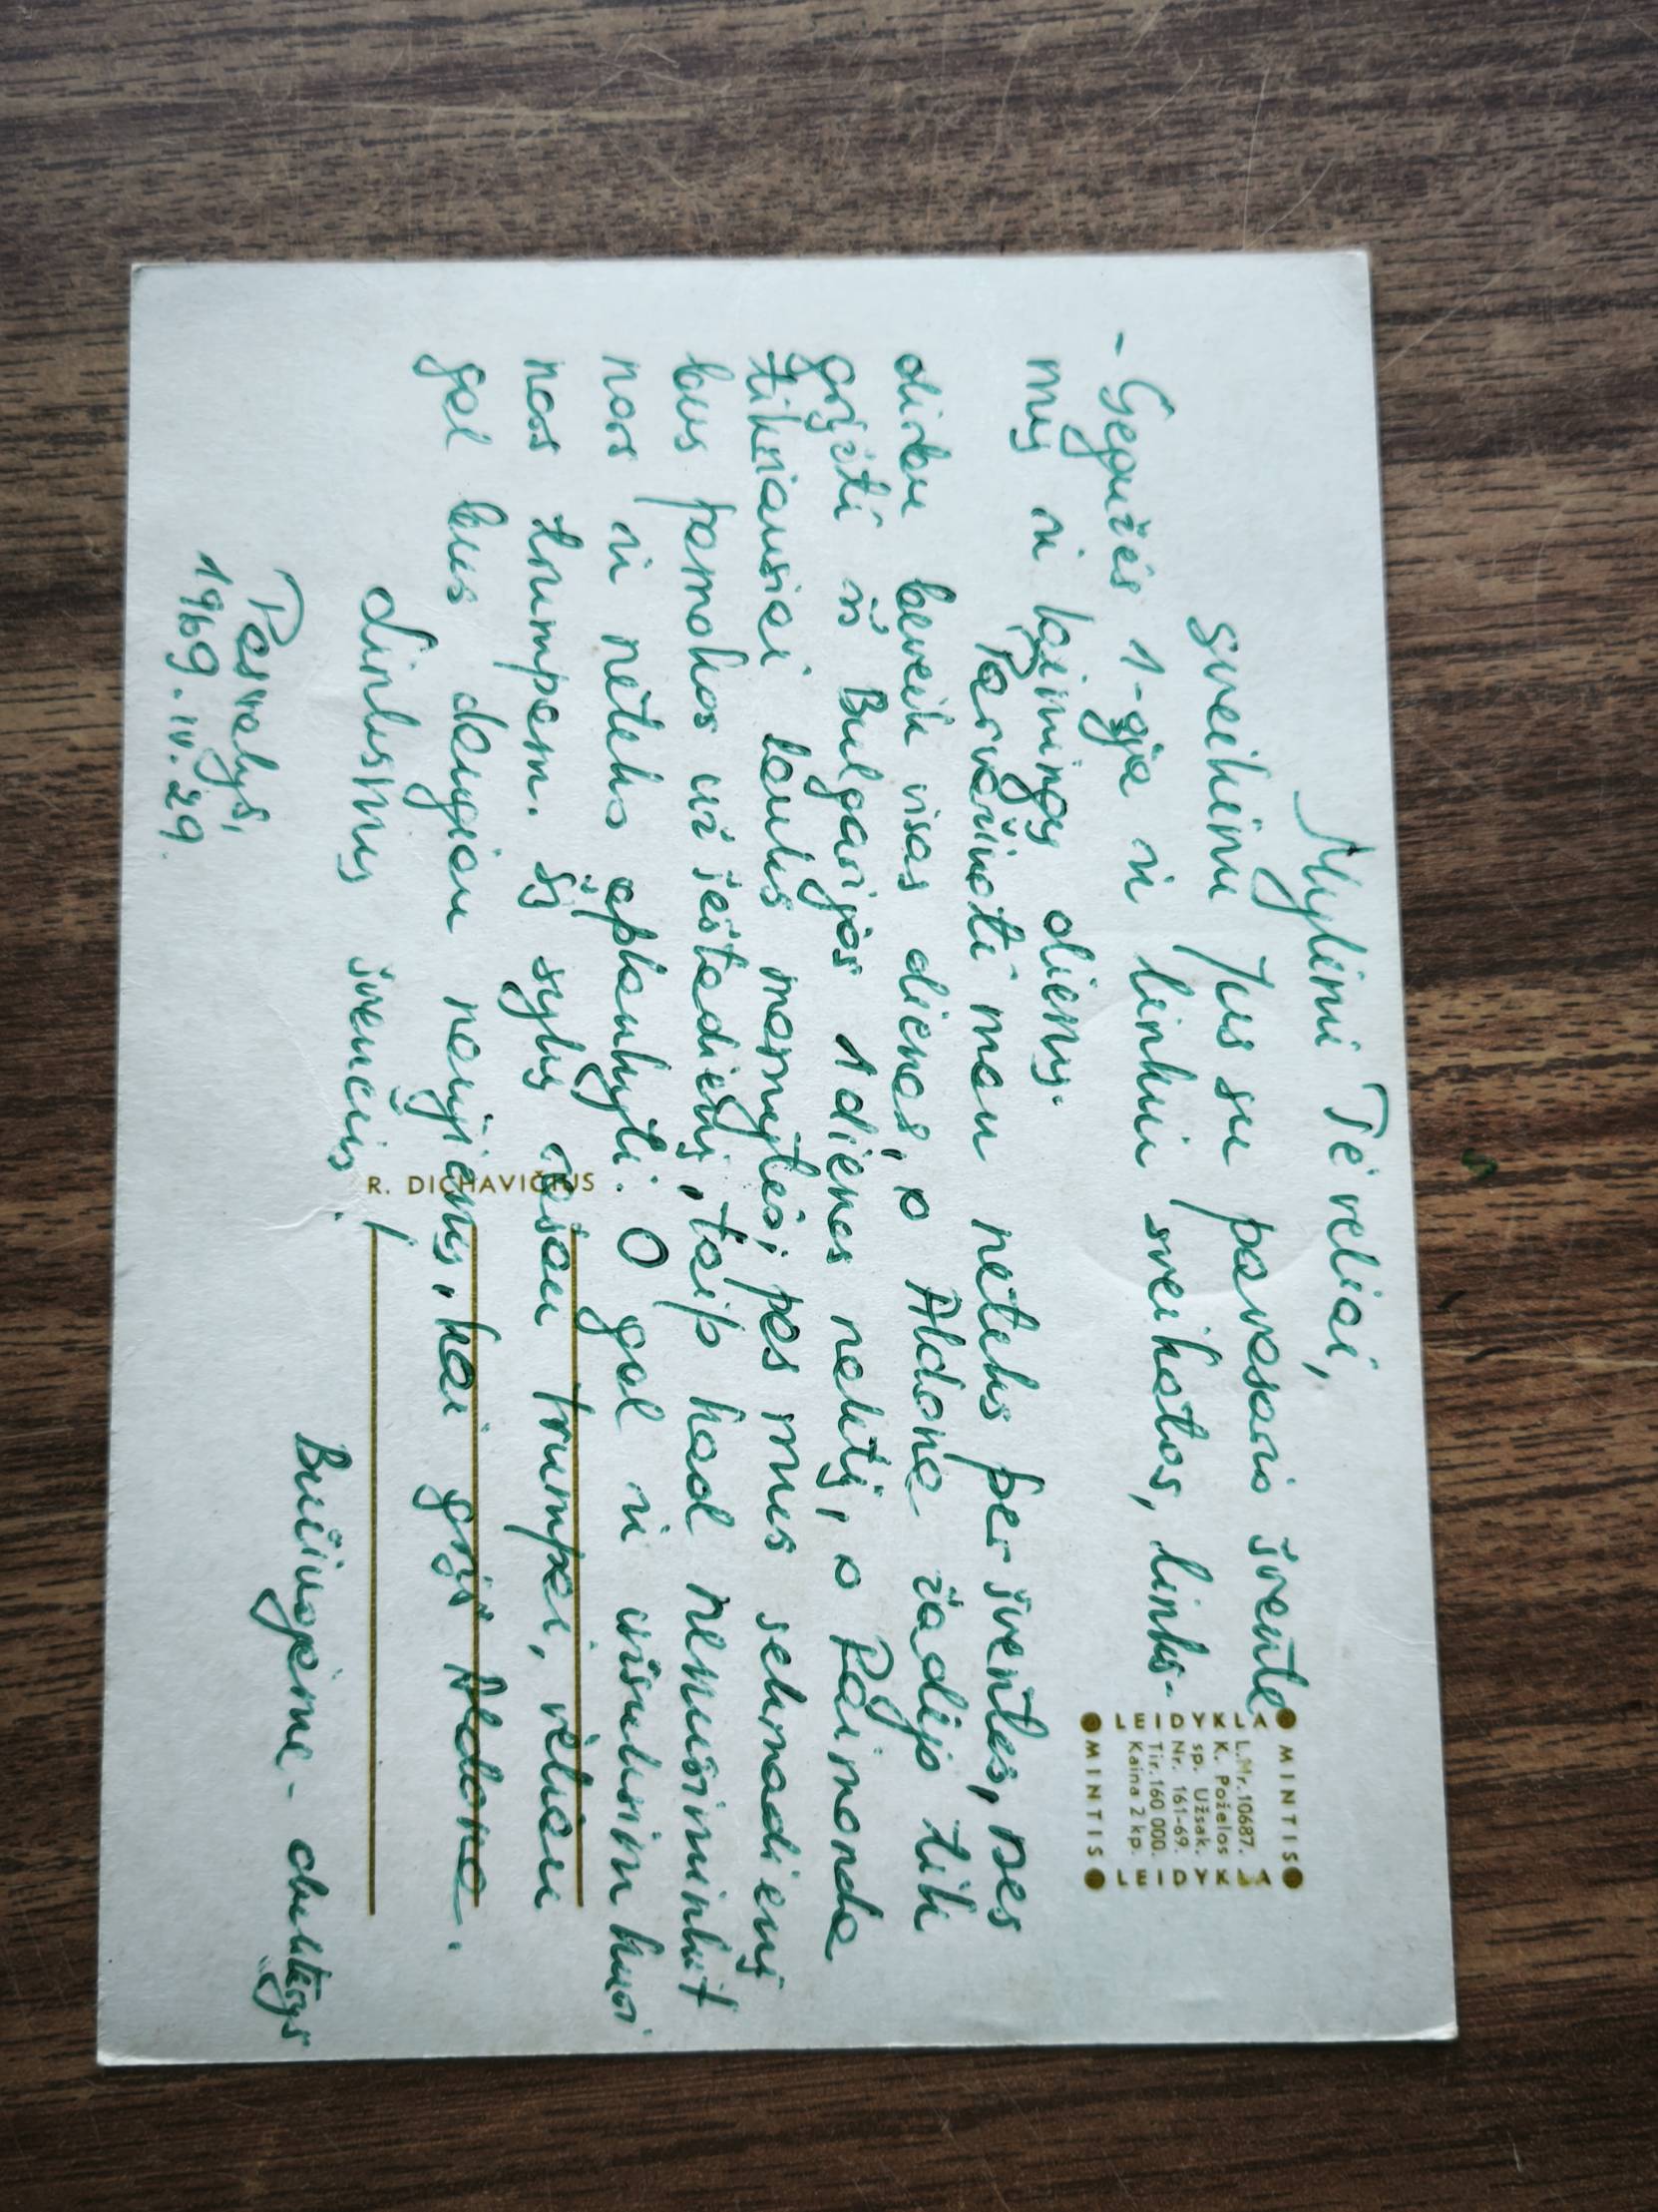 Mylimi Tėveliai,
sveikinu Jus su pavasario švente
- Gegužės 1-ąja ir linkiu sveikatos, links-
mų ir laimingų dienų.
Parvažiuoti man neteks per šventes, nes
dirbu beveik visas dienas, o Aldona žadėjo tik
grįžti iš Bulgarijos 1 dienos naktį, o Raimonda
tikriausiai lauks mamytės pas mus sekmadienį
bus pamokos už šeštadienį, taip kad nenusiminkit
nors ir neteks aplankyti. O gal ir užsuksim kuri
nors trumpam. Šį sykį rašau trumpai, vėliau
gal bus daugiau naujienų, kai grįš Aldona.
Linksmų švenčių!
Bučiuojame - dukterys
Pasvalys,
1969.IV.29.
R. DICHAVIČIUS
MINTIS
LEIDYKLA
L.Nr.10687.
K. Poželos
sp. Užsak.
Nr. 161-69.
Tir.160 000.
Kaina 2 kp.
LEIDYKLA
MINTIS